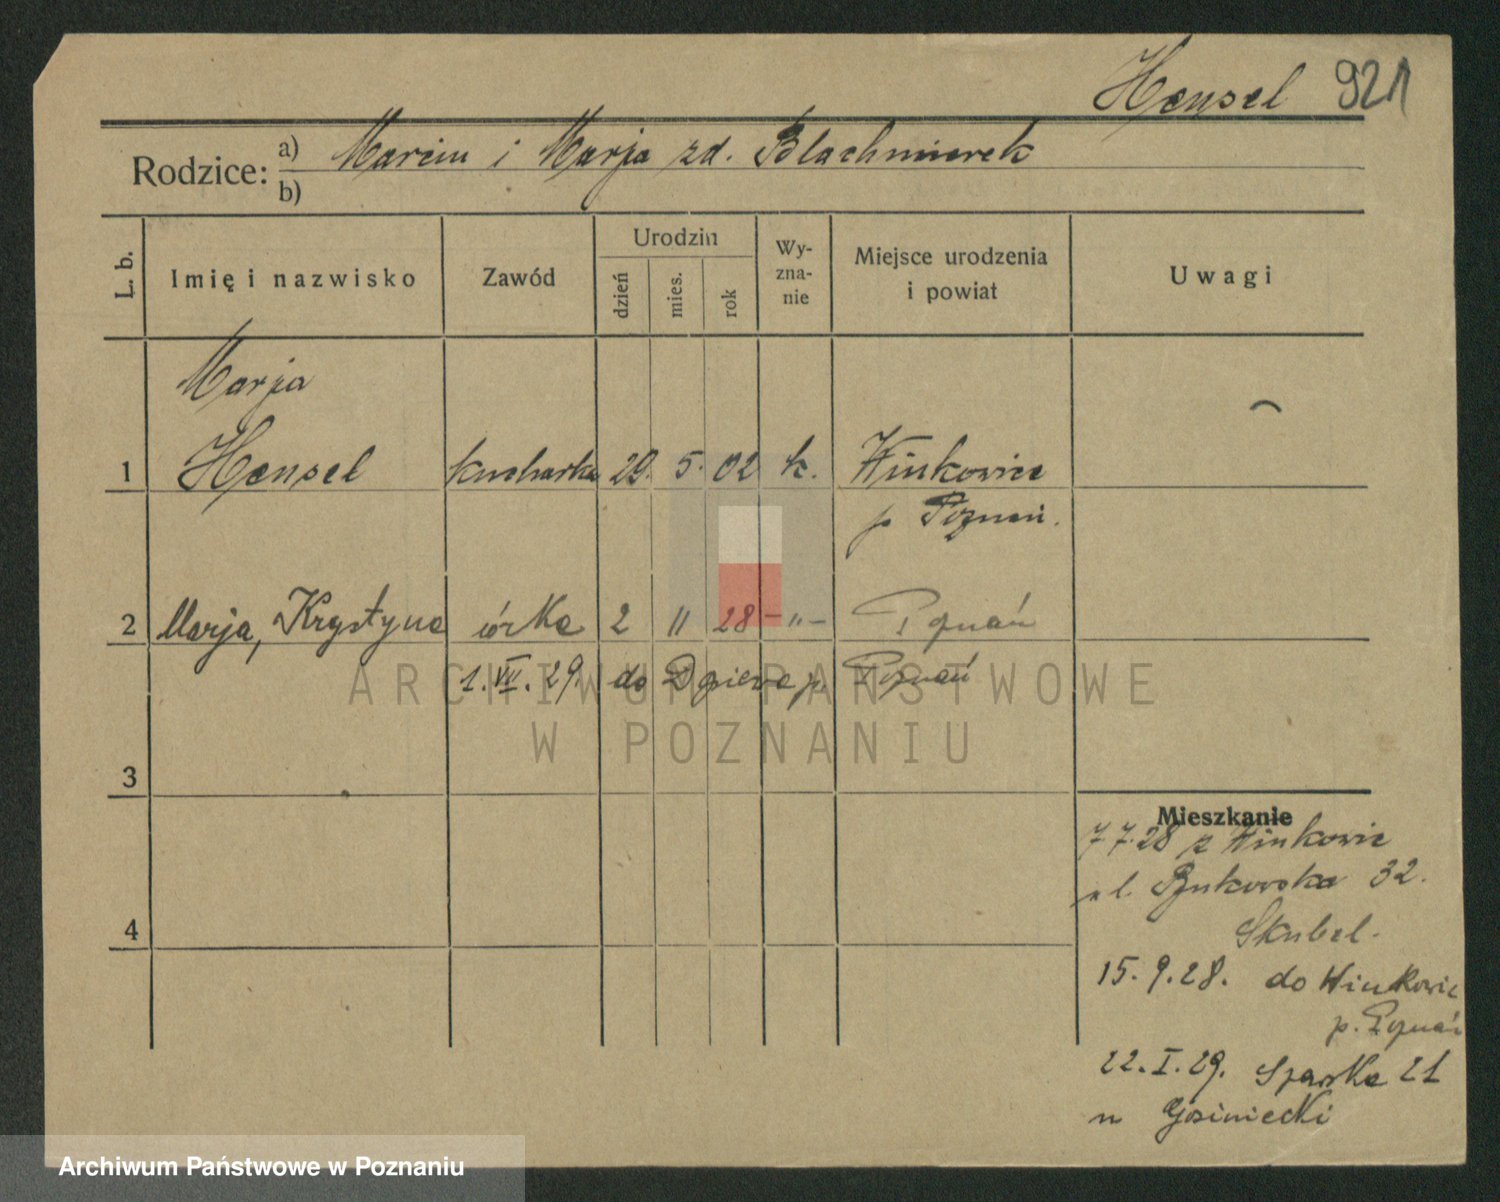 Hensel 921
Rodzice: a) Marcin i Marja zd. Blachnierek
b)
L. b. Imię i nazwisko Zawód Urodzin dzień mies. rok Wy-zna-nie Miejsce urodzenia i powiat Uwagi
Marja
1 Hensel kucharka 29. 5. 02 k. Winkowice
p Poznań.
2 Marja, Krystyna córka 2 11 28 -"- Poznań
1.VII.29. do p. Poznań
ARCHIWUM PAŃSTWOWE
W POZNANIU
3
Mieszkanie
7 7.28 z Winkowic
ul. Bukowska 32.
4
Skubel.
15.9.28. do Winkowic
p. Poznań
22.I.29. 21
u Gosiniecki
Archiwum Państwowe w Poznaniu